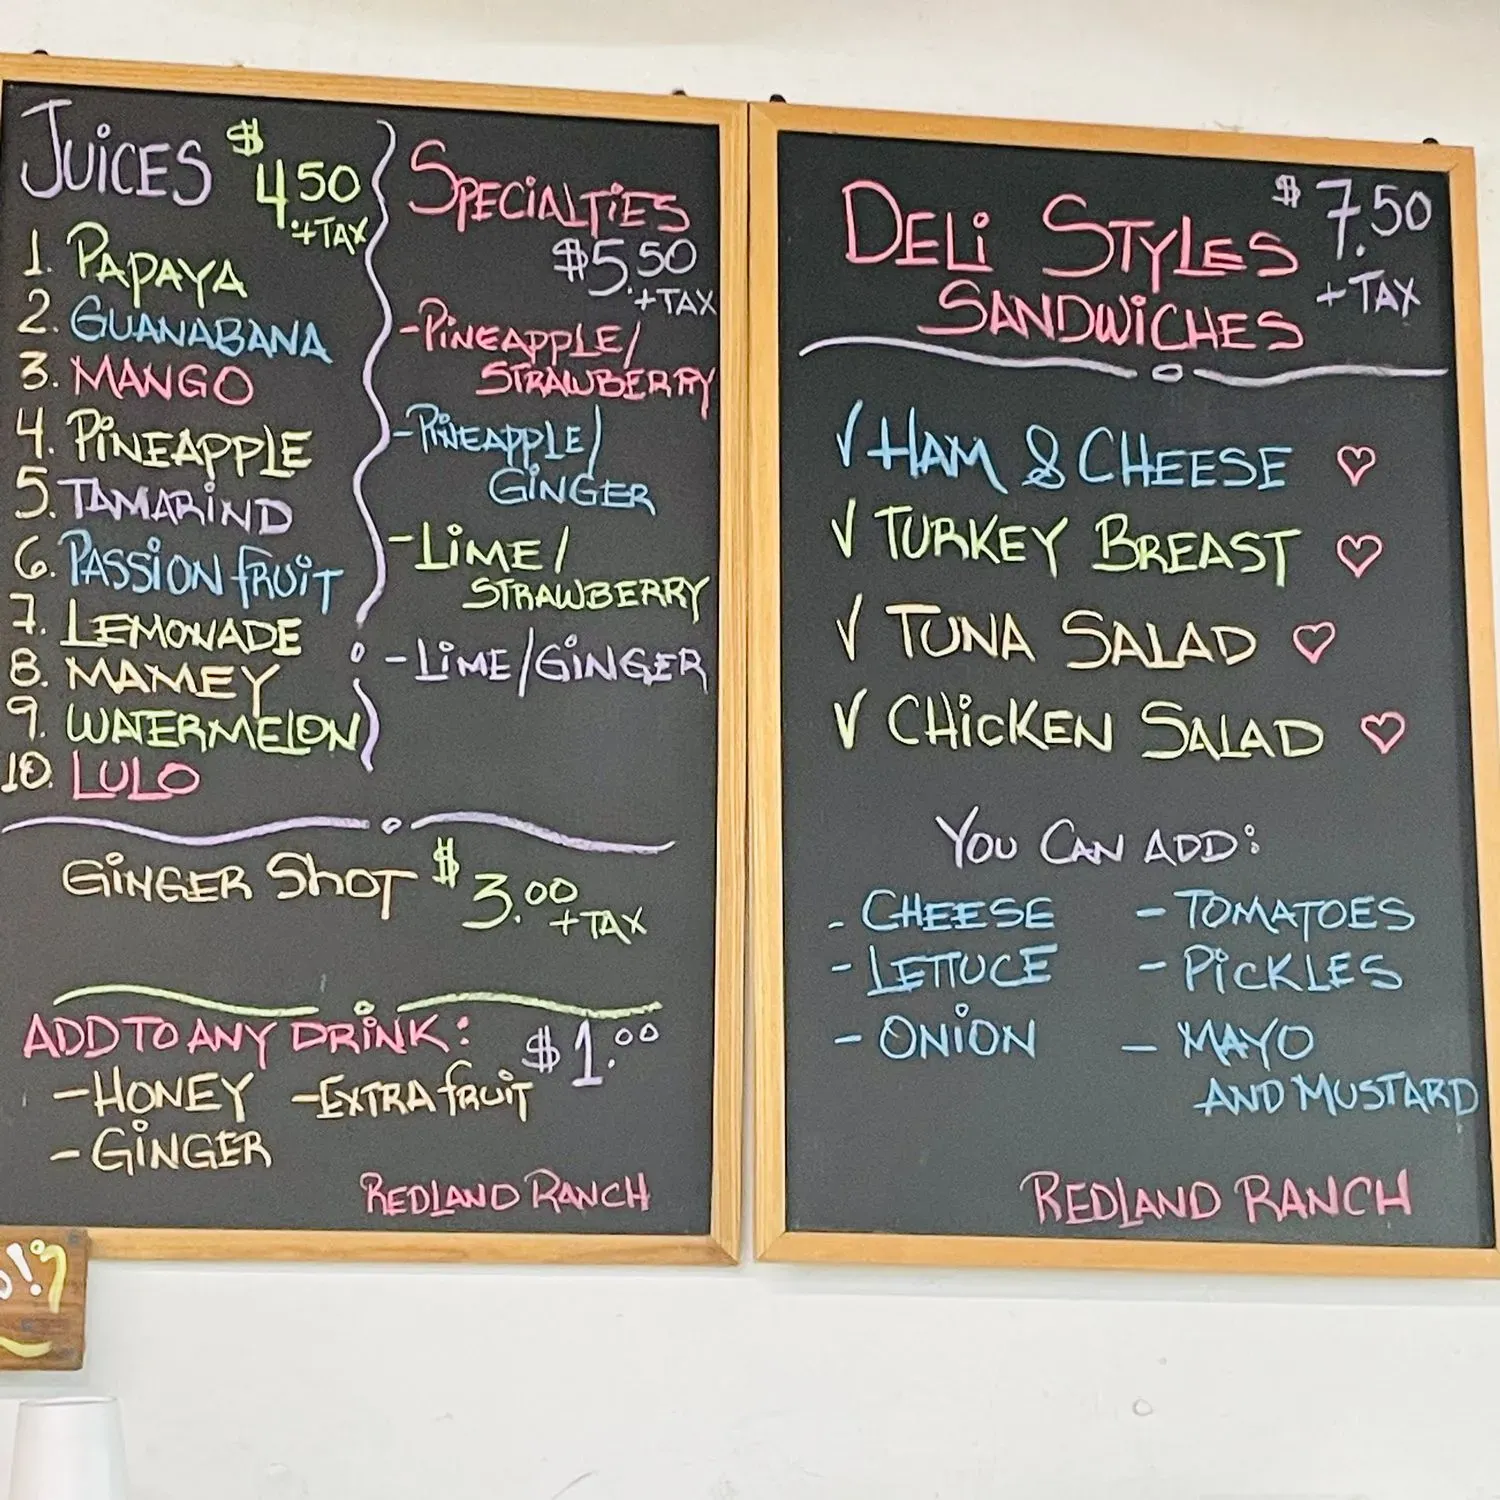 JUiCES $4.50
+TAX
1. PAPAYA
2. GUANABANA
3. MANGO
4. PiNEAPPLE
5. TAMARiND
6. PASSiON fRUiT
7. LEMONADE
8. MAMEY
9. WATERMELON
10. LULO
SPECiALTiES
$5.50
+TAX
-PiNEAPPLE/
STRAWBERRY
-PiNEAPPLE/
GiNGER
-LiME/
STRAWBERRY
-LiME/GiNGER
GiNGER ShOT $3.00
+TAX
ADD TO ANY DRiNK: $1.00
-HONEY -EXTRA fRUiT
-GiNGER
REDLAND RANCH
DELi STYLES $7.50
SANDWiCHES +TAX
√ HAM & CHEESE ♡
√ TURKEY BREAST ♡
√ TUNA SALAD ♡
√ CHiCKEN SALAD ♡
YOU CAN ADD:
- CHEESE - TOMATOES
- LETTUCE - PiCKLES
- ONiON - MAYO
AND MUSTARD
REDLAND RANCH